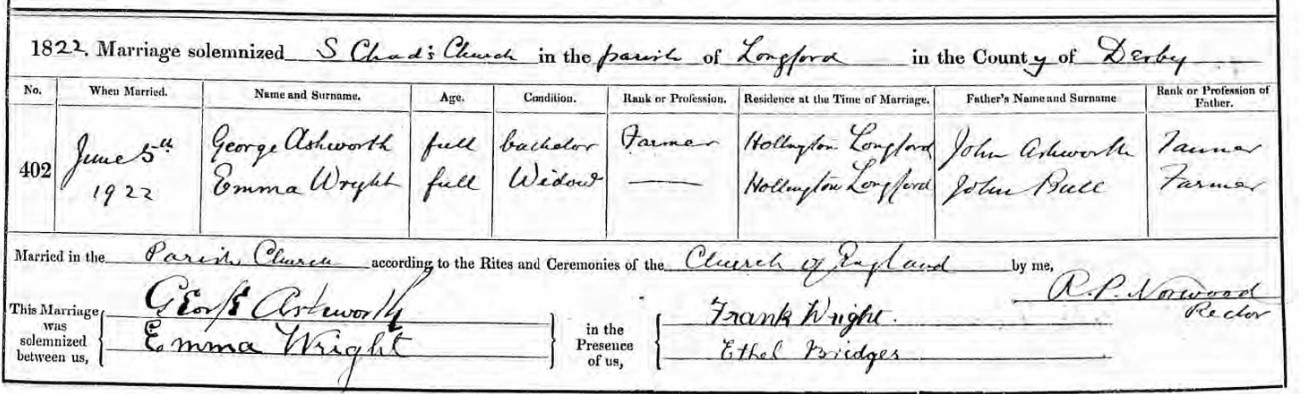 1822. Marriage solemnized S Chad's Church in the parish of Longford in the County of Derby
No. When Married. Name and Surname. Age. Condition. Rank or Profession. Residence at the Time of Marriage. Father's Name and Surname Rank or Profession of Father.
402 June 5th 1922 George Ashworth full bachelor Farmer Hollington Longford John Ashworth Farmer
Emma Wright full Widow — Hollington Longford John Bull Farmer
Married in the Parish Church according to the Rites and Ceremonies of the Church of England by me,
R. P. Norwood
Rector
This Marriage was solemnized between us, George Ashworth in the Presence of us, Frank Wright.
Emma Wright Ethel Bridges